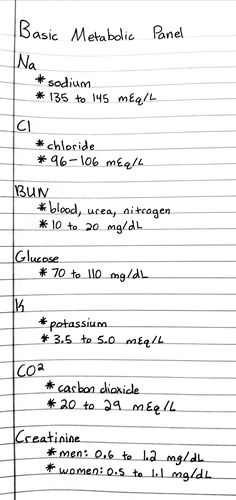 Basic Metabolic Panel
Na
* sodium
* 135 to 145 mEq/L
Cl
* chloride
* 96-106 mEq/L
BUN
* blood, urea, nitrogen
* 10 to 20 mg/dL
Glucose
* 70 to 110 mg/dL
K
* potassium
* 3.5 to 5.0 mEq/L
CO²
* carbon dioxide
* 20 to 29 mEq/L
Creatinine
* men: 0.6 to 1.2 mg/dL
* women: 0.5 to 1.1 mg/dL